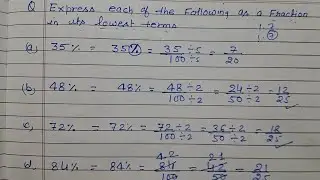 Q Express each of the Following as a Fraction
in its lowest terms
(a) 35% = 35% = 35÷5 / 100÷5 = 7/20
(b) 48% = 48% = 48÷2 / 100÷2 = 24÷2 / 50÷2 = 12/25
c) 72% = 72% = 72÷2 / 100÷2 = 36÷2 / 50÷2 = 18/25
d. 84% = 84% = 84/100 = 42/50 = 21/25